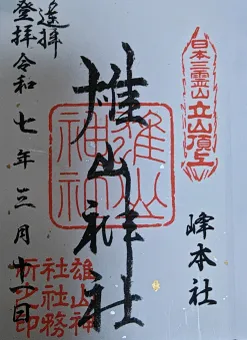 日本三霊山
立山頂上
峰本社
雄山神社
雄山
神社
雄山神
社社務
所之印
遥拝
登拝令和七年三月十一日